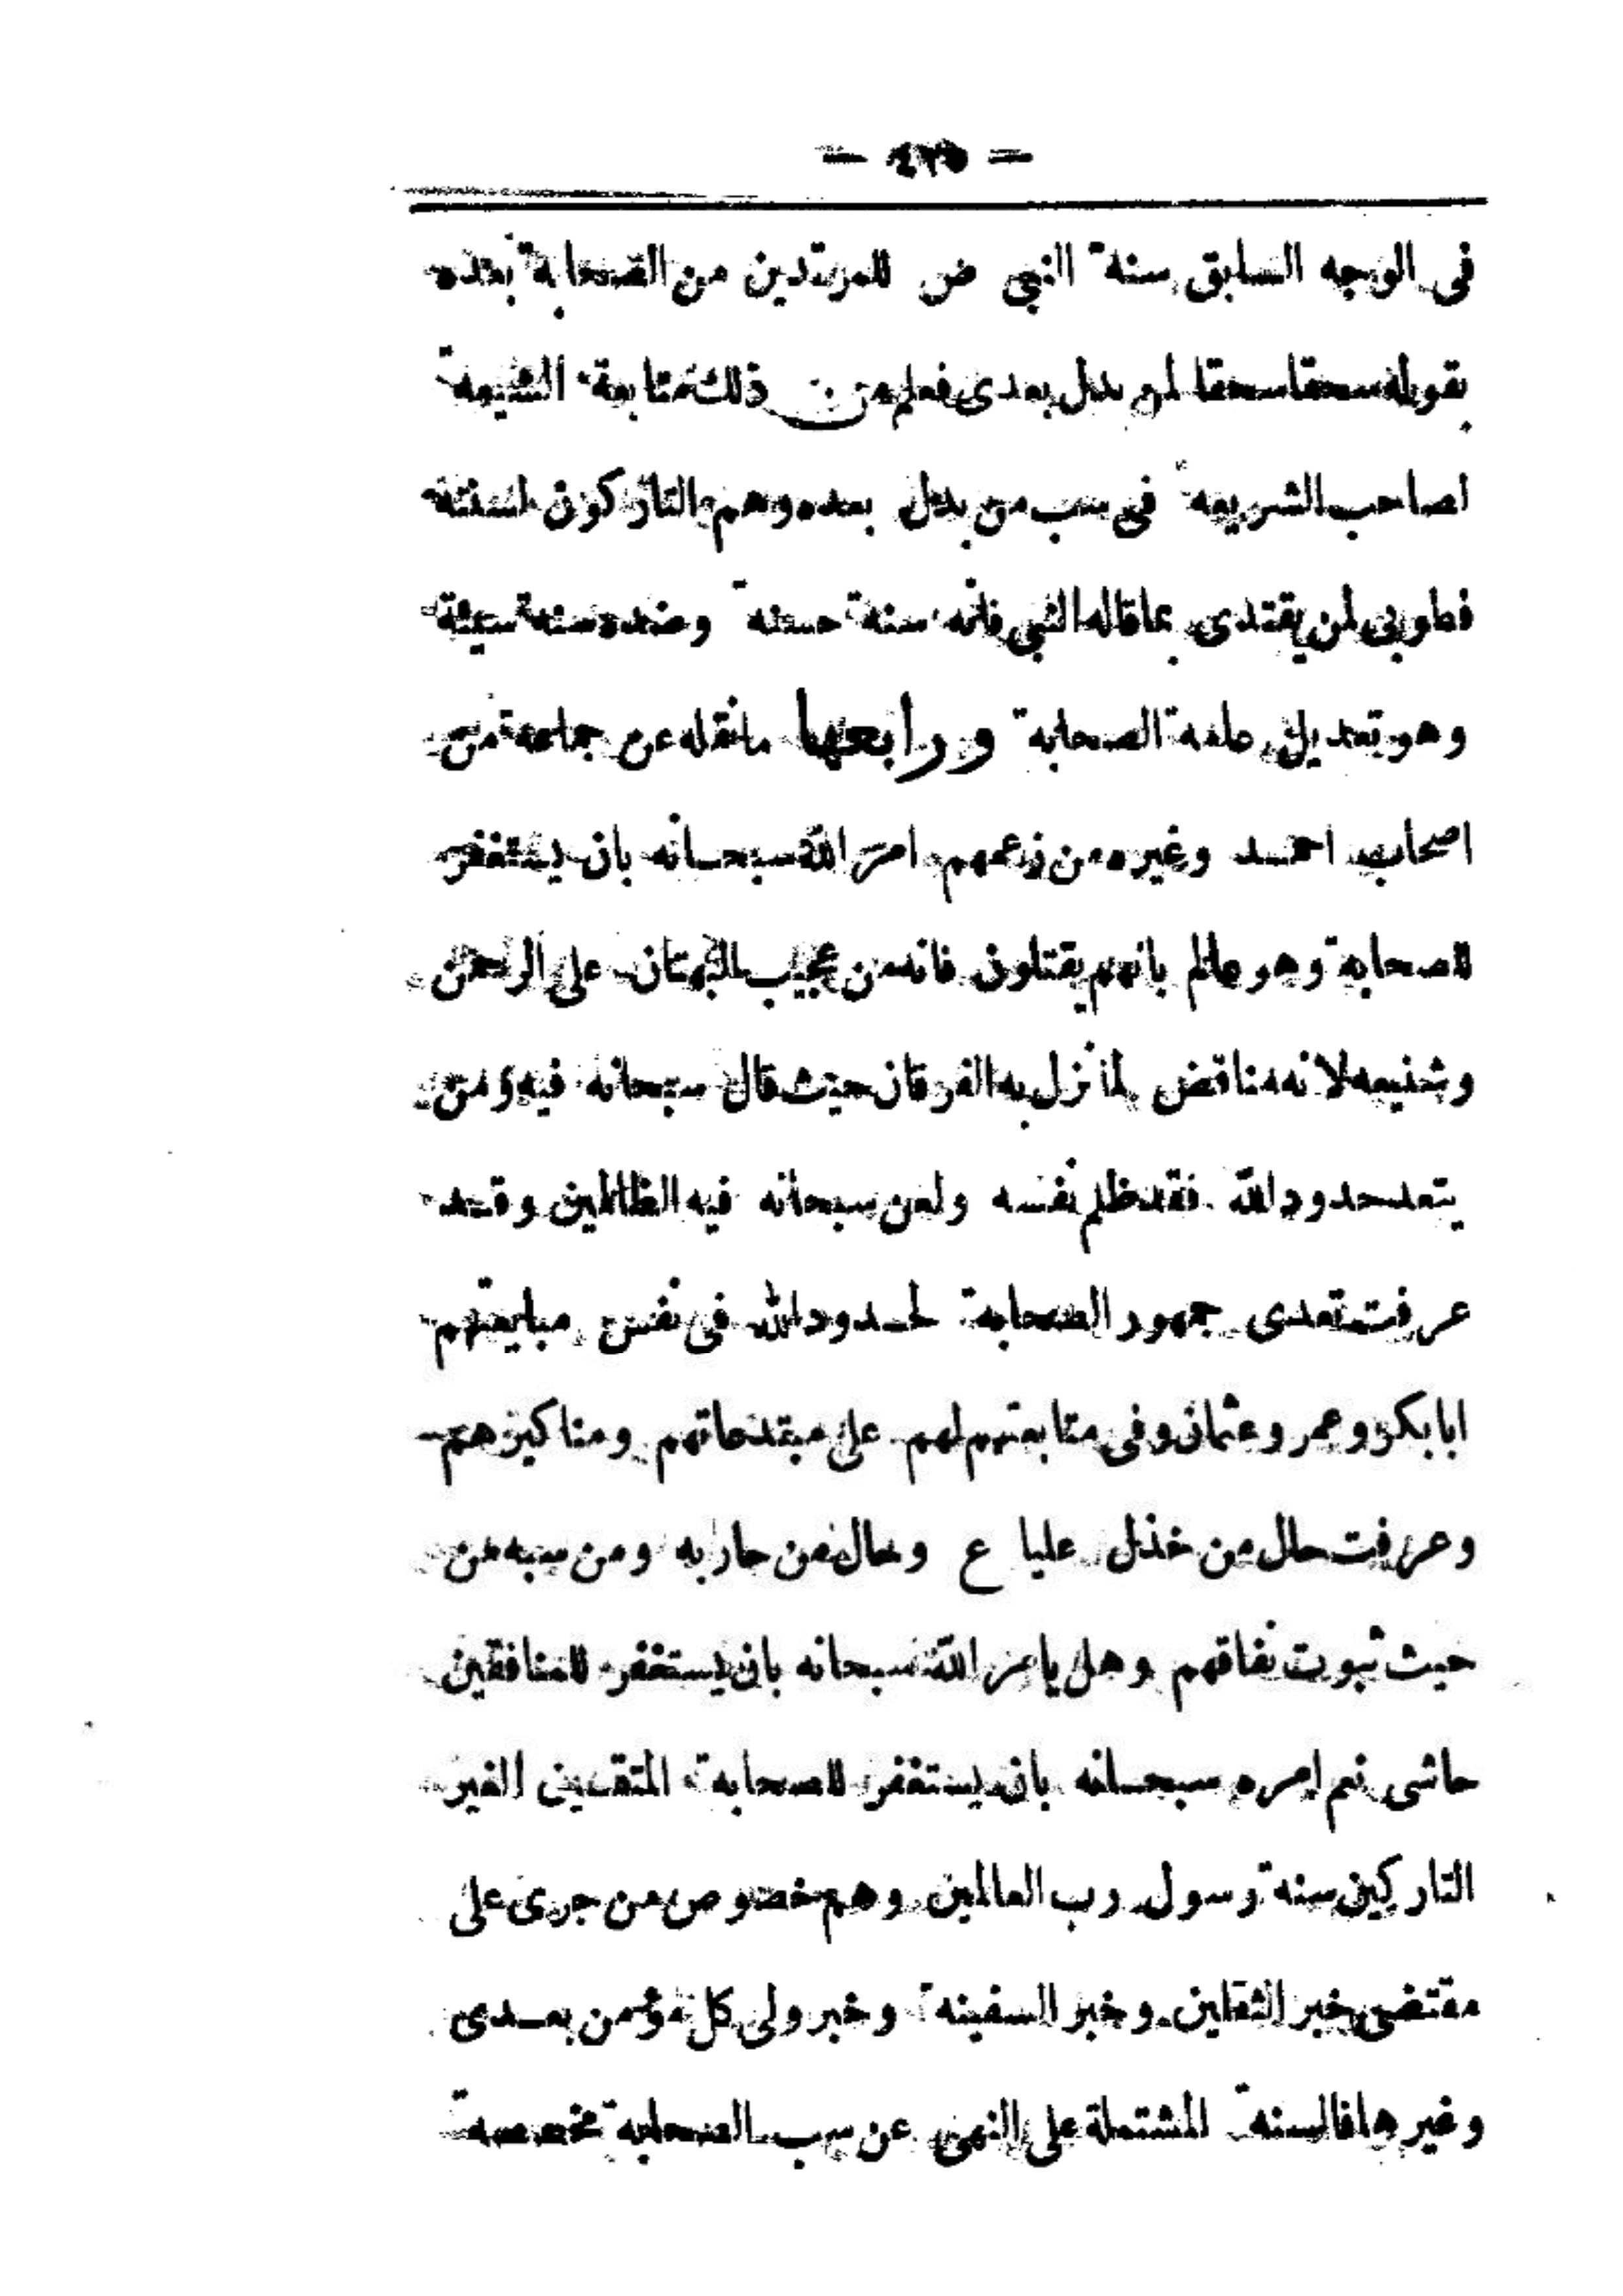 — ٤٢٥ —
فى الوجه السابق سنة النبى ص للمرتدين من الصحابة بعده
بقوله سحقا سحقا لمن بدل بعدى فعلم من ذلك متابعة الشيعة
لصاحب الشريعة فى سب من بدل بعده وهم التاركون لسنته
فطوبى لمن يقتدى بما قاله النبى فانه سنة حسنة وضده سنة سيئة
وهو تعديل عامة الصحابة ورابعها ما نقله عن جماعة من
اصحاب احمد وغيره من زعمهم امر الله سبحانه بان يستغفر
للصحابة وهو عالم بانهم يقتتلون فانه من عجيب البهتان على الرحمن
وشنيعه لانه مناقض لما نزل به الفرقان حيث قال سبحانه فيه ومن
يتعد حدود الله فقد ظلم نفسه ولعن سبحانه فيه الظالمين وقد
عرفت تعدى جمهور الصحابة لحدود الله فى نفس مبايعتهم
ابابكر وعمر وعثمان وفى متابعتهم لهم على مبتدعاتهم ومناكيرهم
وعرفت حال من خذل عليا ع وحال من حاربه ومن سبه من
حيث ثبوت نفاقهم وهل يامر الله سبحانه بان يستغفر للمنافقين
حاشى نعم امره سبحانه بان يستغفر للصحابة المتقين الغير
التاركين سنة رسول رب العالمين وهم خصوص من جرى على
مقتضى خبر الثقلين وخبر السفينة وخبر ولى كل مؤمن بعدى
وغيرها فالسنة المشتملة على النهى عن سب الصحابة مخصصة